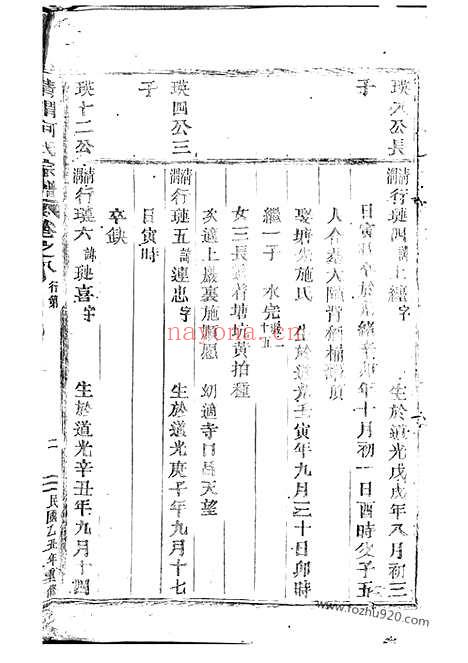 瑛六公長子
清渭行璉四諱上經字 生於道光戊戌年八月初三
日寅時卒於光緒辛卯年十月初一日酉時父子五
人合墓大
娶塘先施氏 生於道光壬寅年九月三十日卯時
繼一子 水完
女三長適 塘 黃拍種
次適上 裏施 愿 幼適寺口呂天望
瑛四公三子
清渭行璉五諱連忠字 生於道光庚子年九月十七
日寅時
卒缺
瑛十二公
清渭行璉六諱璉喜字 生於道光辛丑年九月十四
清渭何氏宗譜 卷之八 行第 二 民國乙丑年重修
nayona.cn
www.fozhu920.com